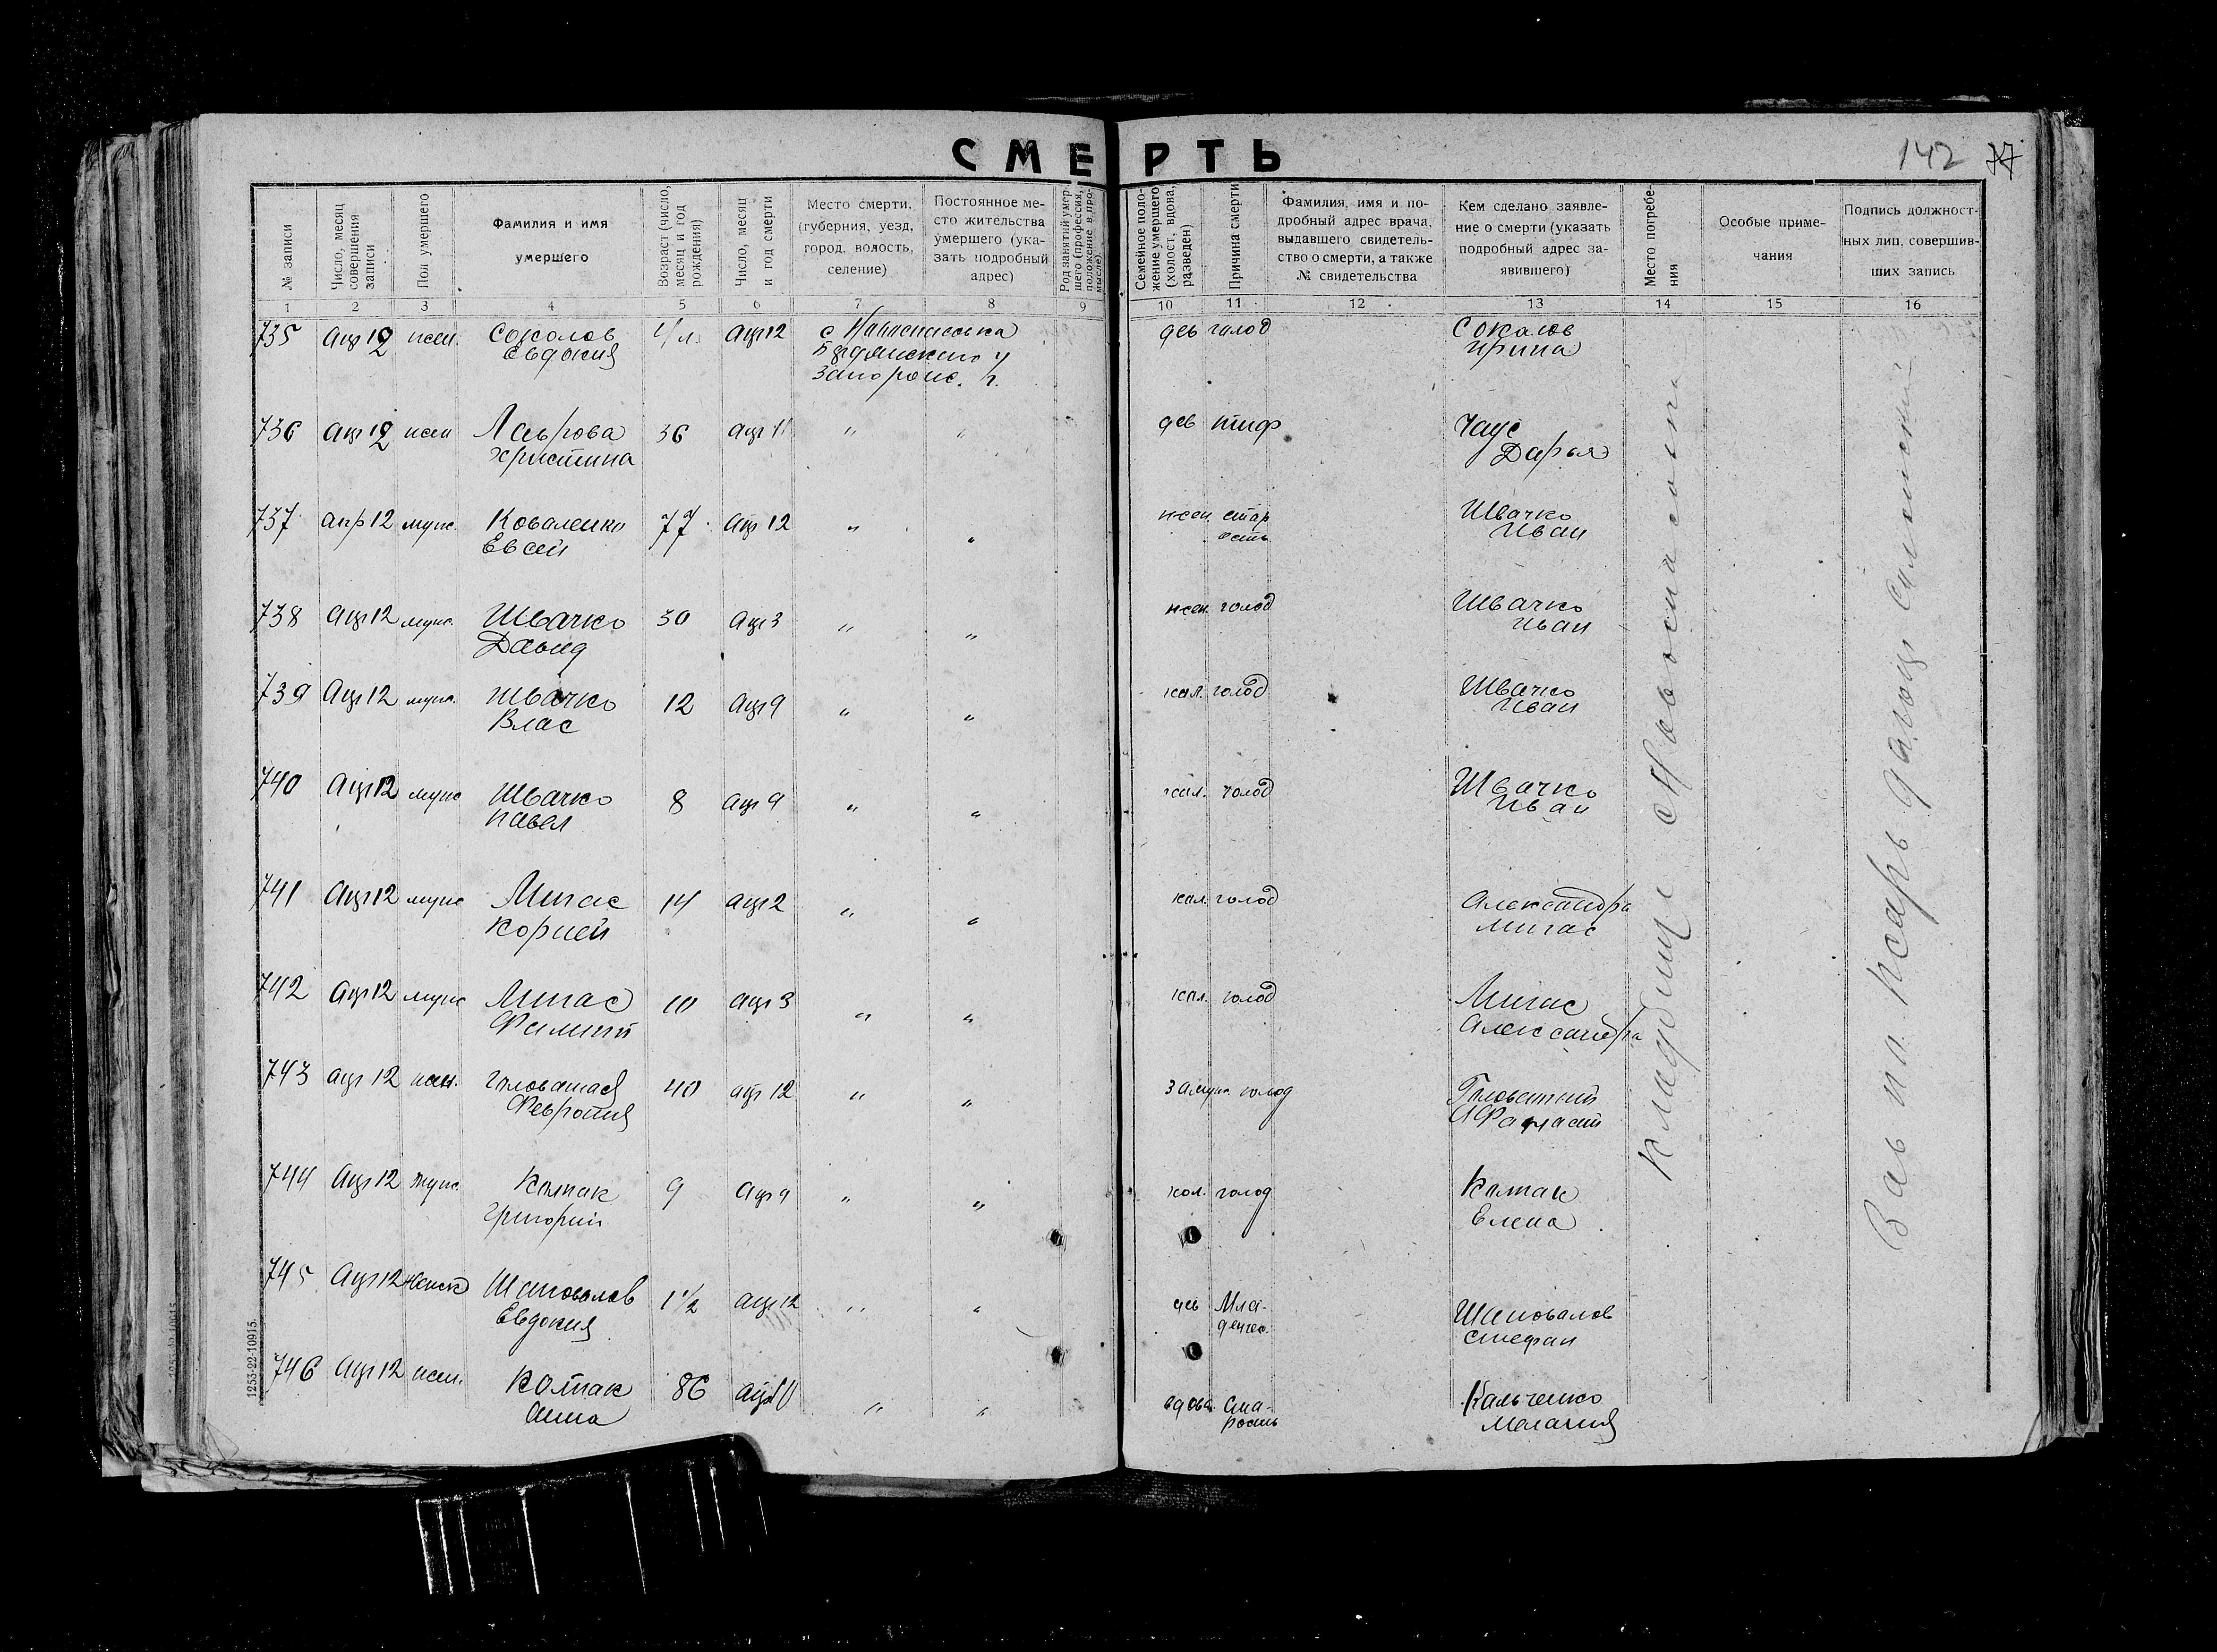 СМЕРТЬ
142 77
№ записи
Число, месяц совершения записи
Пол умершего
Фамилия и имя умершего
Возраст (число, месяц и год рождения)
Число, месяц и год смерти
Место смерти, (губерния, уезд, город, волость, селение)
Постоянное место жительства умершего (указать подробный адрес)
Род занятий умершего (профессия, положение в промысле).
Семейное положение умершего (холост, вдова, разведен)
Причина смерти
Фамилия, имя и подробный адрес врача, выдавшего свидетельство о смерти, а также № свидетельства
Кем сделано заявление о смерти (указать подробный адрес заявившего)
Место погребения
Особые примечания
Подпись должностных лиц, совершивших запись
1 2 3 4 5 6 7 8 9 10 11 12 13 14 15 16
735 апр 12 жен. Соколов апр 12 с. дев голод Соколов
Евдокия Ирина
Запорож. г.
736 апр 12 жен Лаврова 36 апр 11 " " дев тиф Чаус
Христина Дарья
737 апр 12 муж. Коваленко 77 апр 12 " " жен. стар Швачко
Евсей ость Иван
738 апр 12 муж. Швачко 30 апр 3 " " жен. голод Швачко
Давид Иван
739 апр 12 муж. Швачко 12 апр 9 " " хол. голод Швачко
Влас Иван
740 апр 12 муж Швачко 8 апр 9 " " хол. голод Швачко
Павел Иван
741 апр 12 муж Мигас 14 апр 2 " " хол. голод Александра
Корней Мигас
742 апр 12 муж Мигас 10 апр 3 " " хол. голод Мигас
Филипп Александра
743 апр 12 жен. Головатая 40 апр 12 " " замуж. голод Головатий
Феврония Афанасий
744 апр 12 муж. Колпак 9 апр 9 " " хол. голод Колпак
Григорий Елена
745 апр 12 женск Шаповалов 1 1/2 апр 12 " " дев Мла-
Евдокия денчес. Шаповалов
Стефан
746 апр 12 жен. Колпак 86 апр 10 " " вдова Ста-
Анна рость Кальченко
Мелания
Кладбище с.
1253-22-10915.